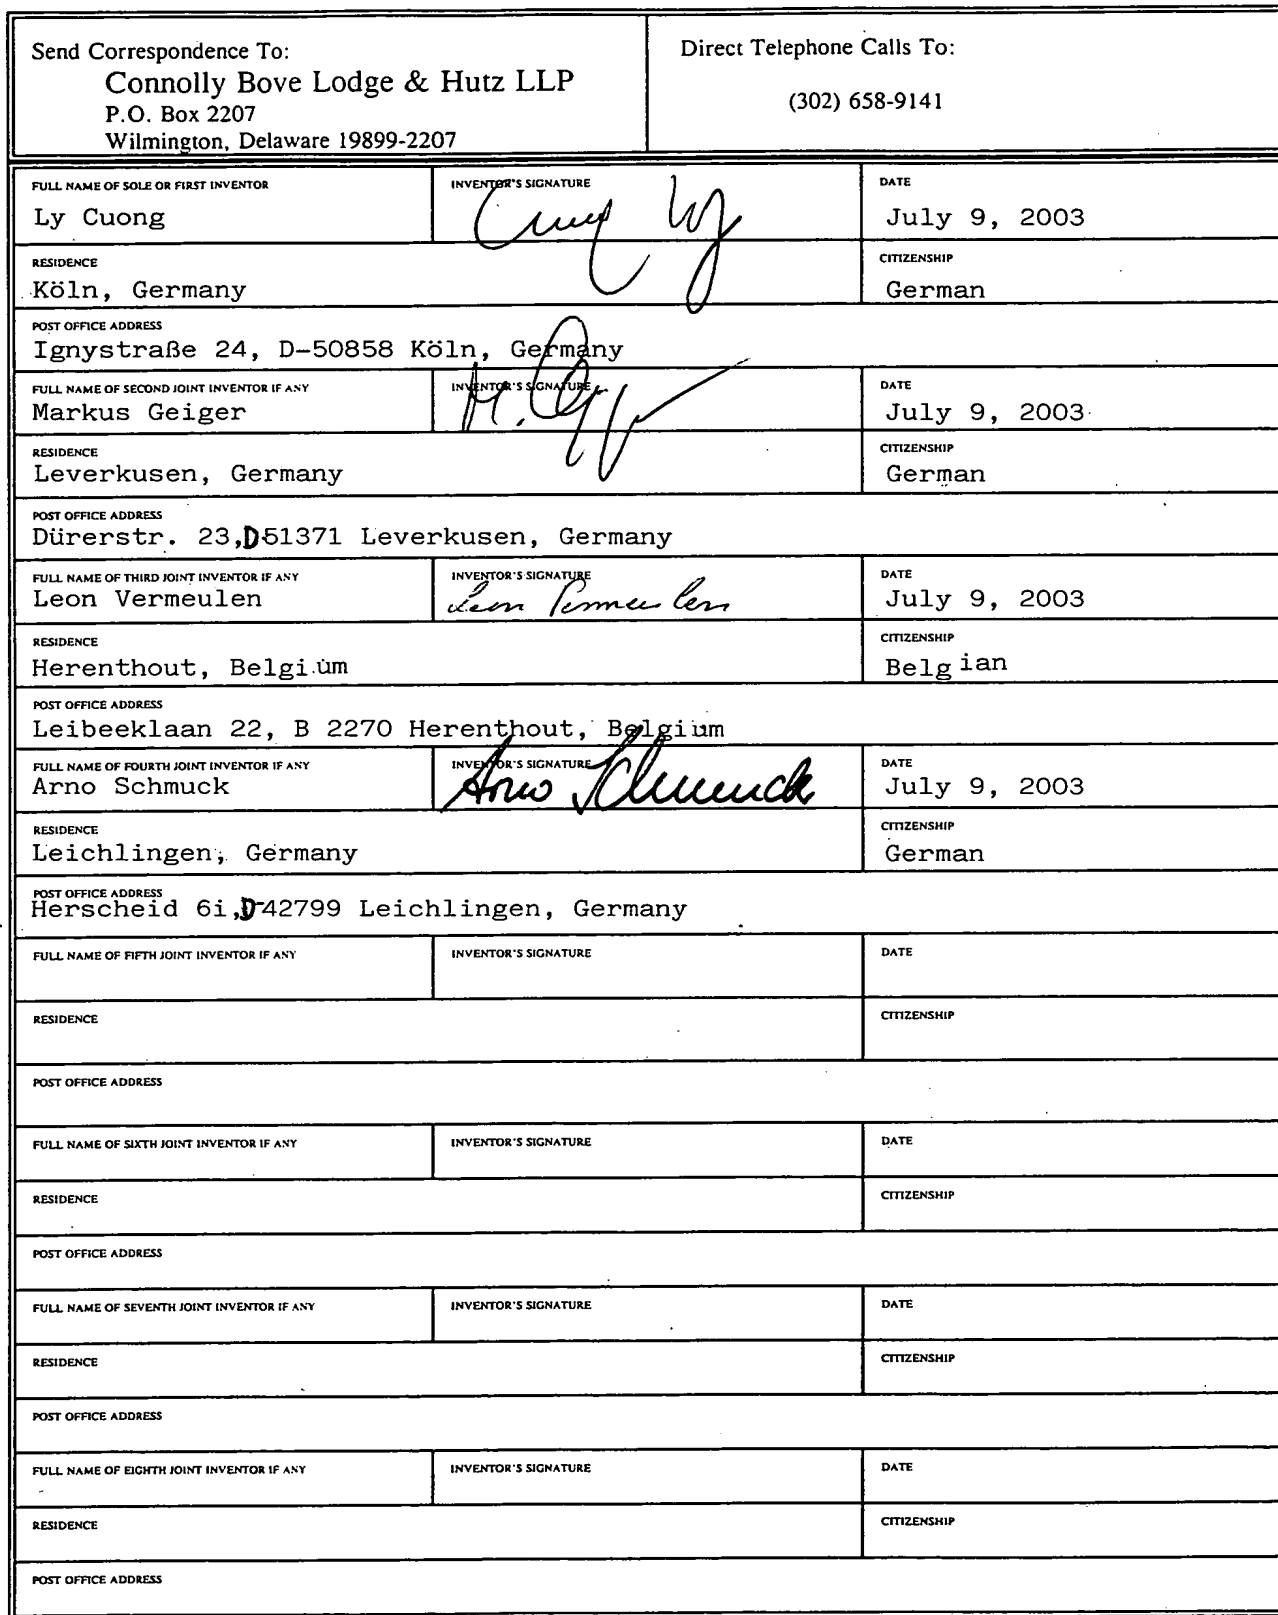 Send Correspondence To:
Connolly Bove Lodge & Hutz LLP
P.O. Box 2207
Wilmington, Delaware 19899-2207
Direct Telephone Calls To:
(302) 658-9141
FULL NAME OF SOLE OR FIRST INVENTOR INVENTOR'S SIGNATURE DATE
Ly Cuong Cuong Ly July 9, 2003
RESIDENCE CITIZENSHIP
Köln, Germany German
POST OFFICE ADDRESS
Ignystraße 24, D-50858 Köln, Germany
FULL NAME OF SECOND JOINT INVENTOR IF ANY INVENTOR'S SIGNATURE DATE
Markus Geiger July 9, 2003
RESIDENCE CITIZENSHIP
Leverkusen, Germany German
POST OFFICE ADDRESS
Dürerstr. 23, D-51371 Leverkusen, Germany
FULL NAME OF THIRD JOINT INVENTOR IF ANY INVENTOR'S SIGNATURE DATE
Leon Vermeulen Leon Vermeulen July 9, 2003
RESIDENCE CITIZENSHIP
Herenthout, Belgium Belgian
POST OFFICE ADDRESS
Leibeeklaan 22, B 2270 Herenthout, Belgium
FULL NAME OF FOURTH JOINT INVENTOR IF ANY INVENTOR'S SIGNATURE DATE
Arno Schmuck Arno Schmuck July 9, 2003
RESIDENCE CITIZENSHIP
Leichlingen, Germany German
POST OFFICE ADDRESS
Herscheid 6i, D-42799 Leichlingen, Germany
FULL NAME OF FIFTH JOINT INVENTOR IF ANY INVENTOR'S SIGNATURE DATE
RESIDENCE CITIZENSHIP
POST OFFICE ADDRESS
FULL NAME OF SIXTH JOINT INVENTOR IF ANY INVENTOR'S SIGNATURE DATE
RESIDENCE CITIZENSHIP
POST OFFICE ADDRESS
FULL NAME OF SEVENTH JOINT INVENTOR IF ANY INVENTOR'S SIGNATURE DATE
RESIDENCE CITIZENSHIP
POST OFFICE ADDRESS
FULL NAME OF EIGHTH JOINT INVENTOR IF ANY INVENTOR'S SIGNATURE DATE
RESIDENCE CITIZENSHIP
POST OFFICE ADDRESS